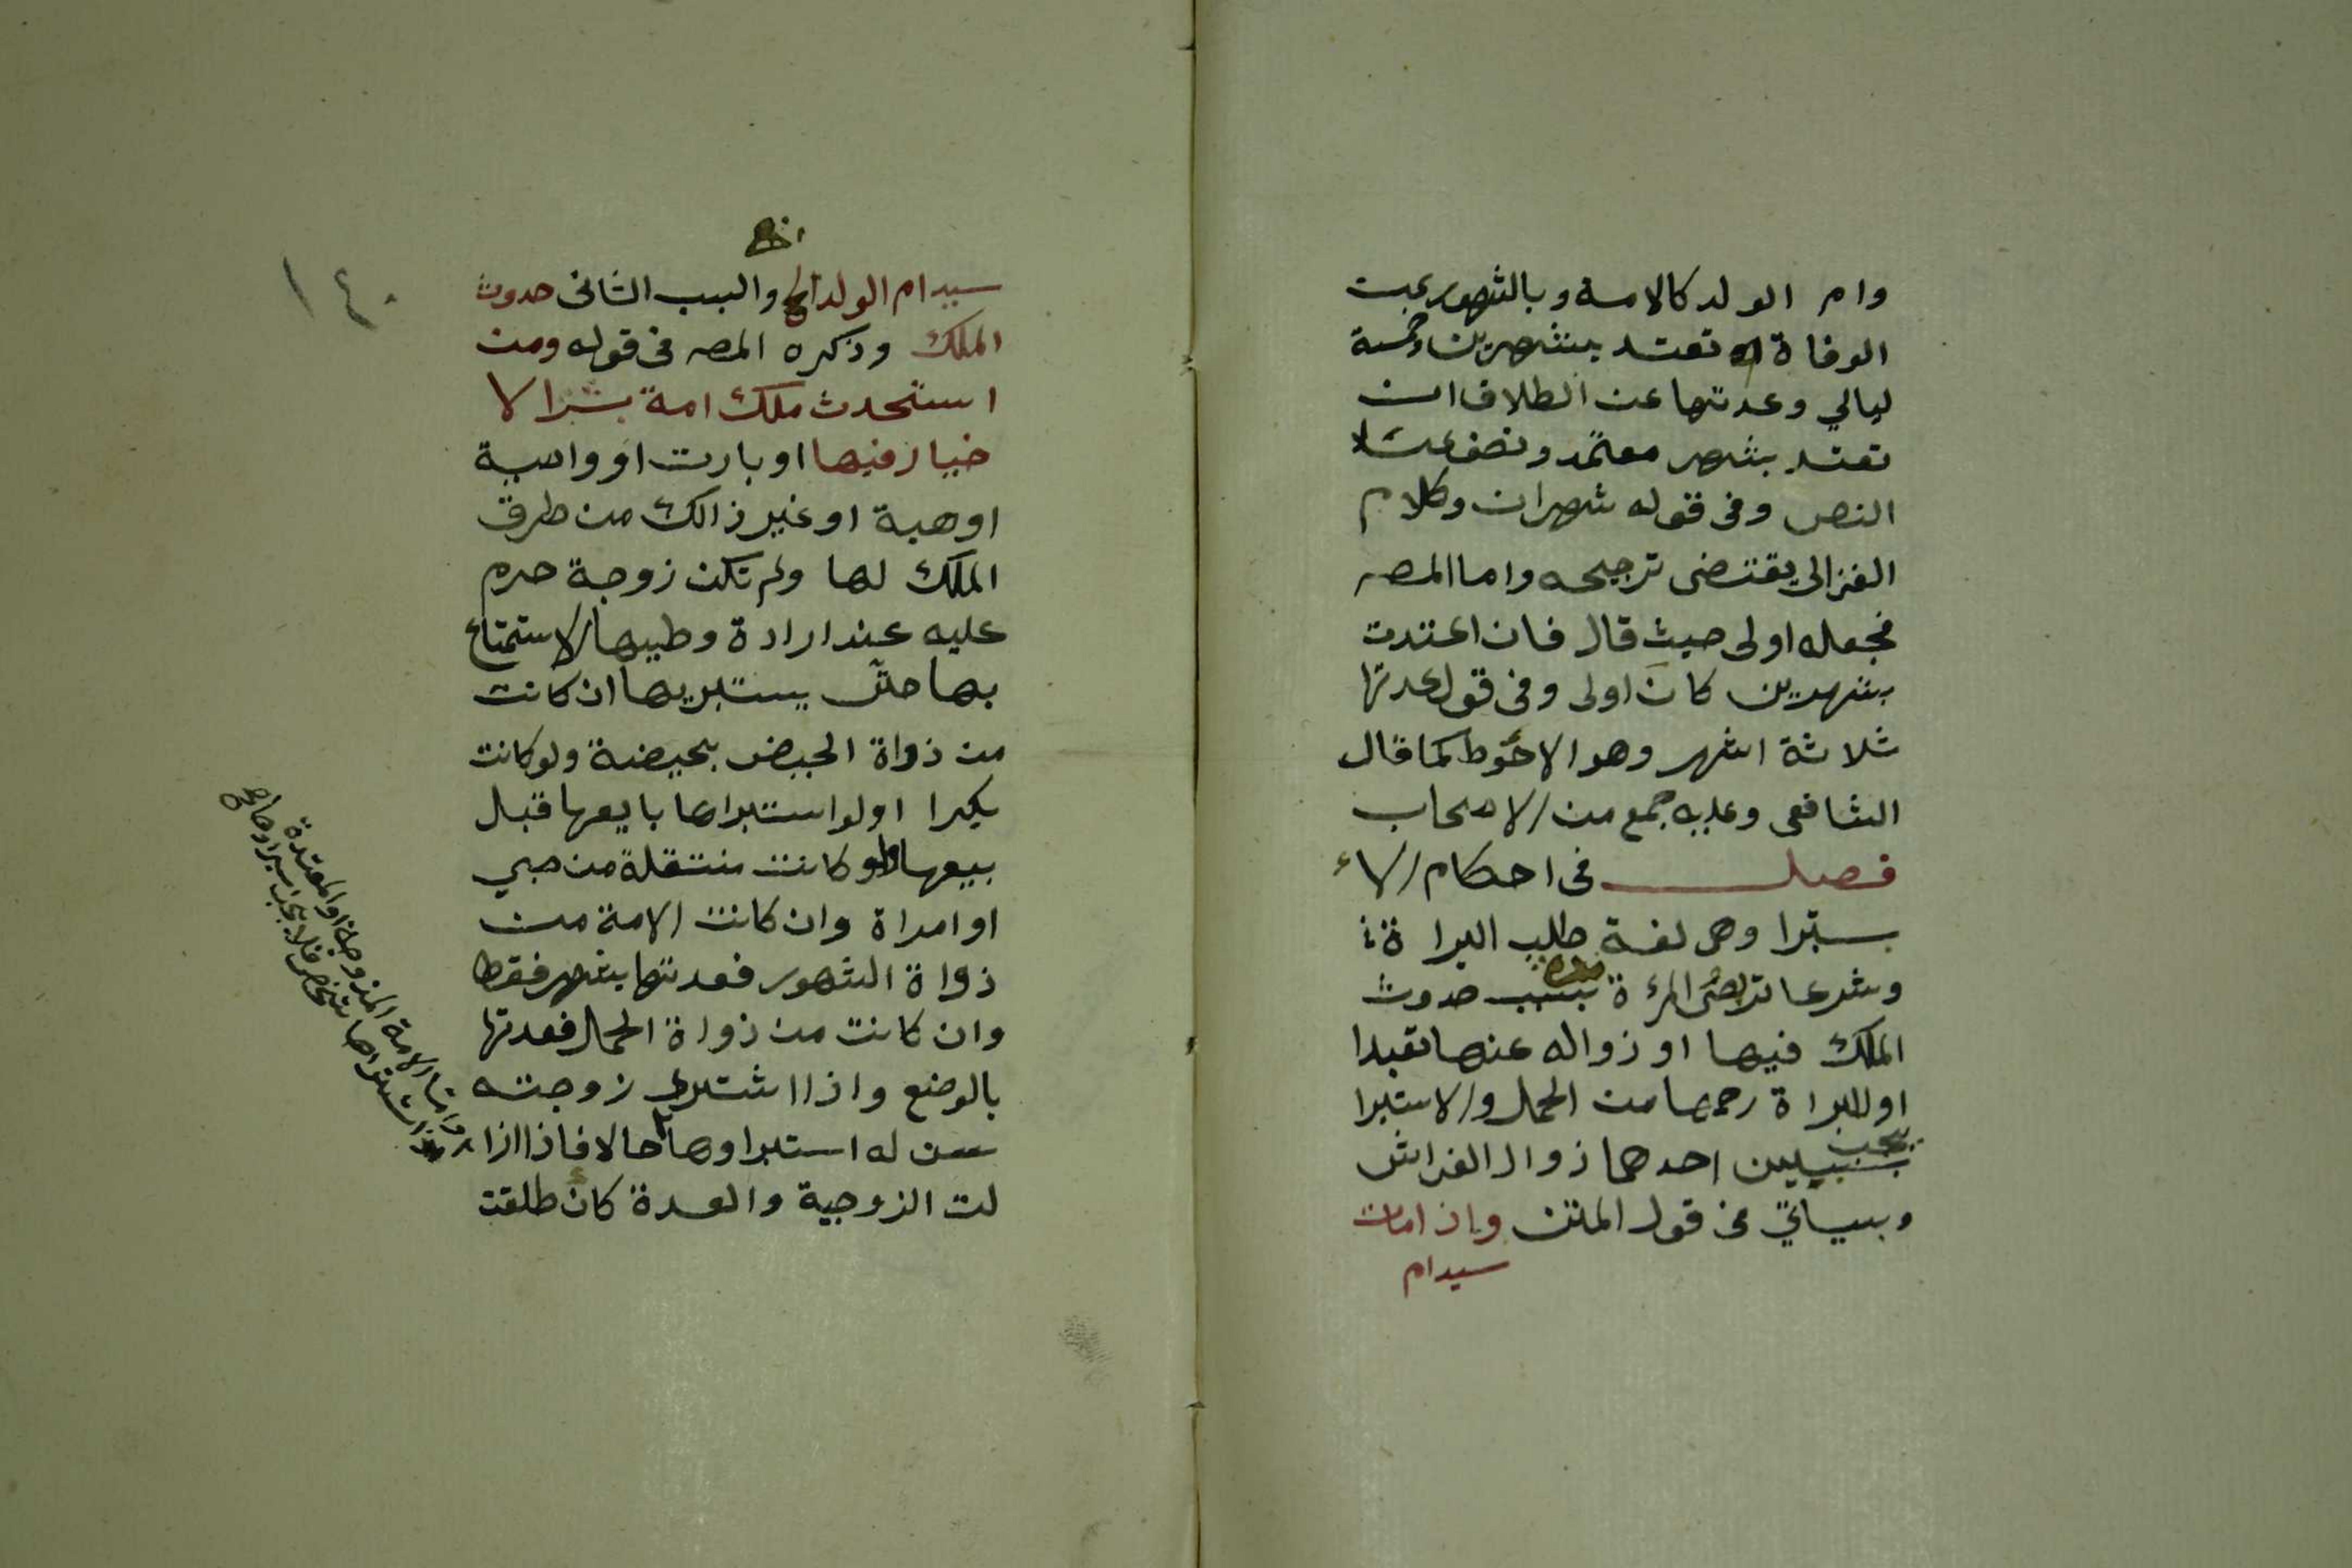 وام الولد كالامة وبالشهور عبت
الوفاة ان تعتد بشهرين وخمسة
ليالي وعدتها عن الطلاق ان
تعتد بشهر معتمد ونصف
النص وفى قوله شهران وكلام
الغزالى يقتضى ترجيحه واما المصـ
فجعله اولى حيث قال فان اعتدت
بشهرين كان اولى وفى قول عدتها
ثلاثة اشهر وهو الاحوط كما قال
الشافعى وعليه جمع من الاصحاب
فصل فى احكام الاء
ستبرا وهى لغة طلب البراة
وشرعا تربص المرءة مدة بسبب حدوث
الملك فيها او زواله عنها تعبدا
او للبراة رحمها من الحمل والاستبرا
يجب بسببين احدهما زوال الفراش
وسياتي فى قول المتن واذا مات
سيد ام
١٤٠
سيد ام الولد الخ والسبب الثانى حدوث
الملك وذكره المصـ فى قوله ومن
استحدث ملك امة بشرا لا
خيار فيها او بارت او واصية
او هبة او غير ذالك من طرق
الملك لها ولم تكن زوجة حرم
عليه عند ارادة وطيها الاستمتاع
بها حتى يستبريها ان كانت
من ذواة الحيض بحيضة ولو كانت
بكرا او لو استبراها بايعها قبل
بيعها ولو كانت منتقلة من صبي
او امراة وان كانت الامة من
ذواة الشهور فعدتها بشهر فقط
وان كانت من ذواة الحمل فعدتها
بالوضع واذا اشترى زوجته
سن له استبراوها حالا فاذا ازا
لت الزوجية والعدة كان طلقت
واما الامة المزوجة او المعتدة
اذا اشتراها شخص فلا يجب استبراوها